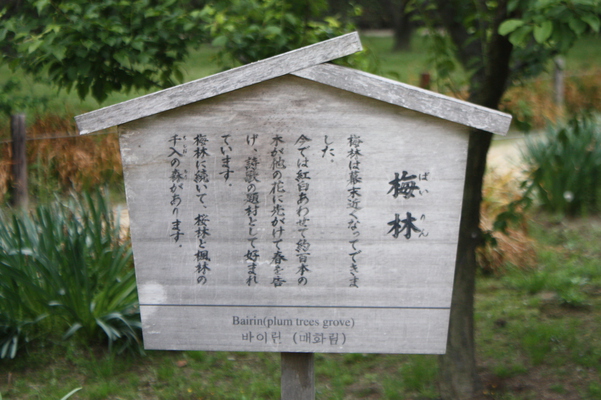 ばい りん
梅林
梅林は幕末近くなってできま
した。
今では紅白あわせて約百本の
木が他の花に先がけて春を告
げ、詩歌の題材として好まれ
ています。
梅林に続いて、桜林と楓林の
千入の森があります。
Bairin(plum trees grove)
바이린 (매화림)